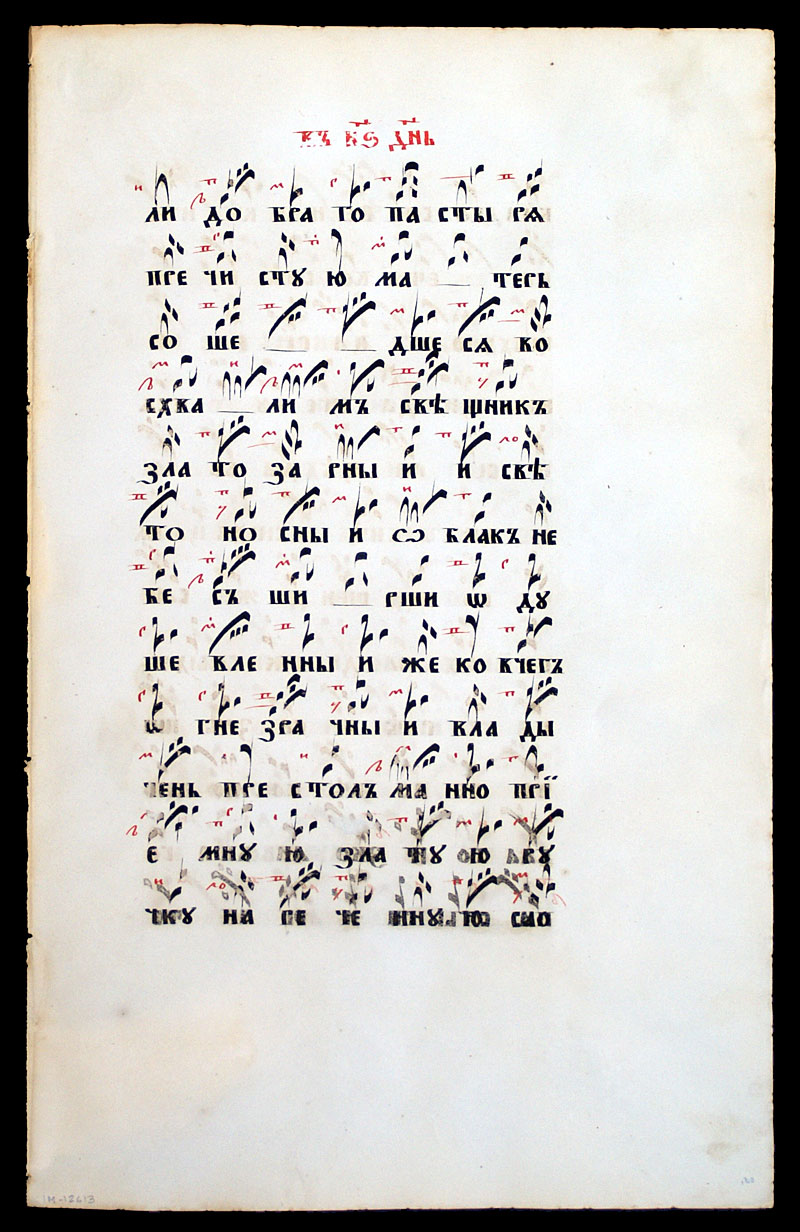 въ к҃ѳ д҃нь
ли до бра го па сты рѧ
пре чи сту ю ма терь
со ше дше сѧ ко
схва ли мъ свѣ щник̾
зла то за рны и и свѣ
то но сны и ѽ блакъ не
бе съ ши рши ѡ ду
ше вле нны и же ко вчегъ
ѡ гне зра чны и вла ды
чень пре столъ ма нно прї
е мну ю зла ту ю
чку на се че нну ю сло
IM-12613